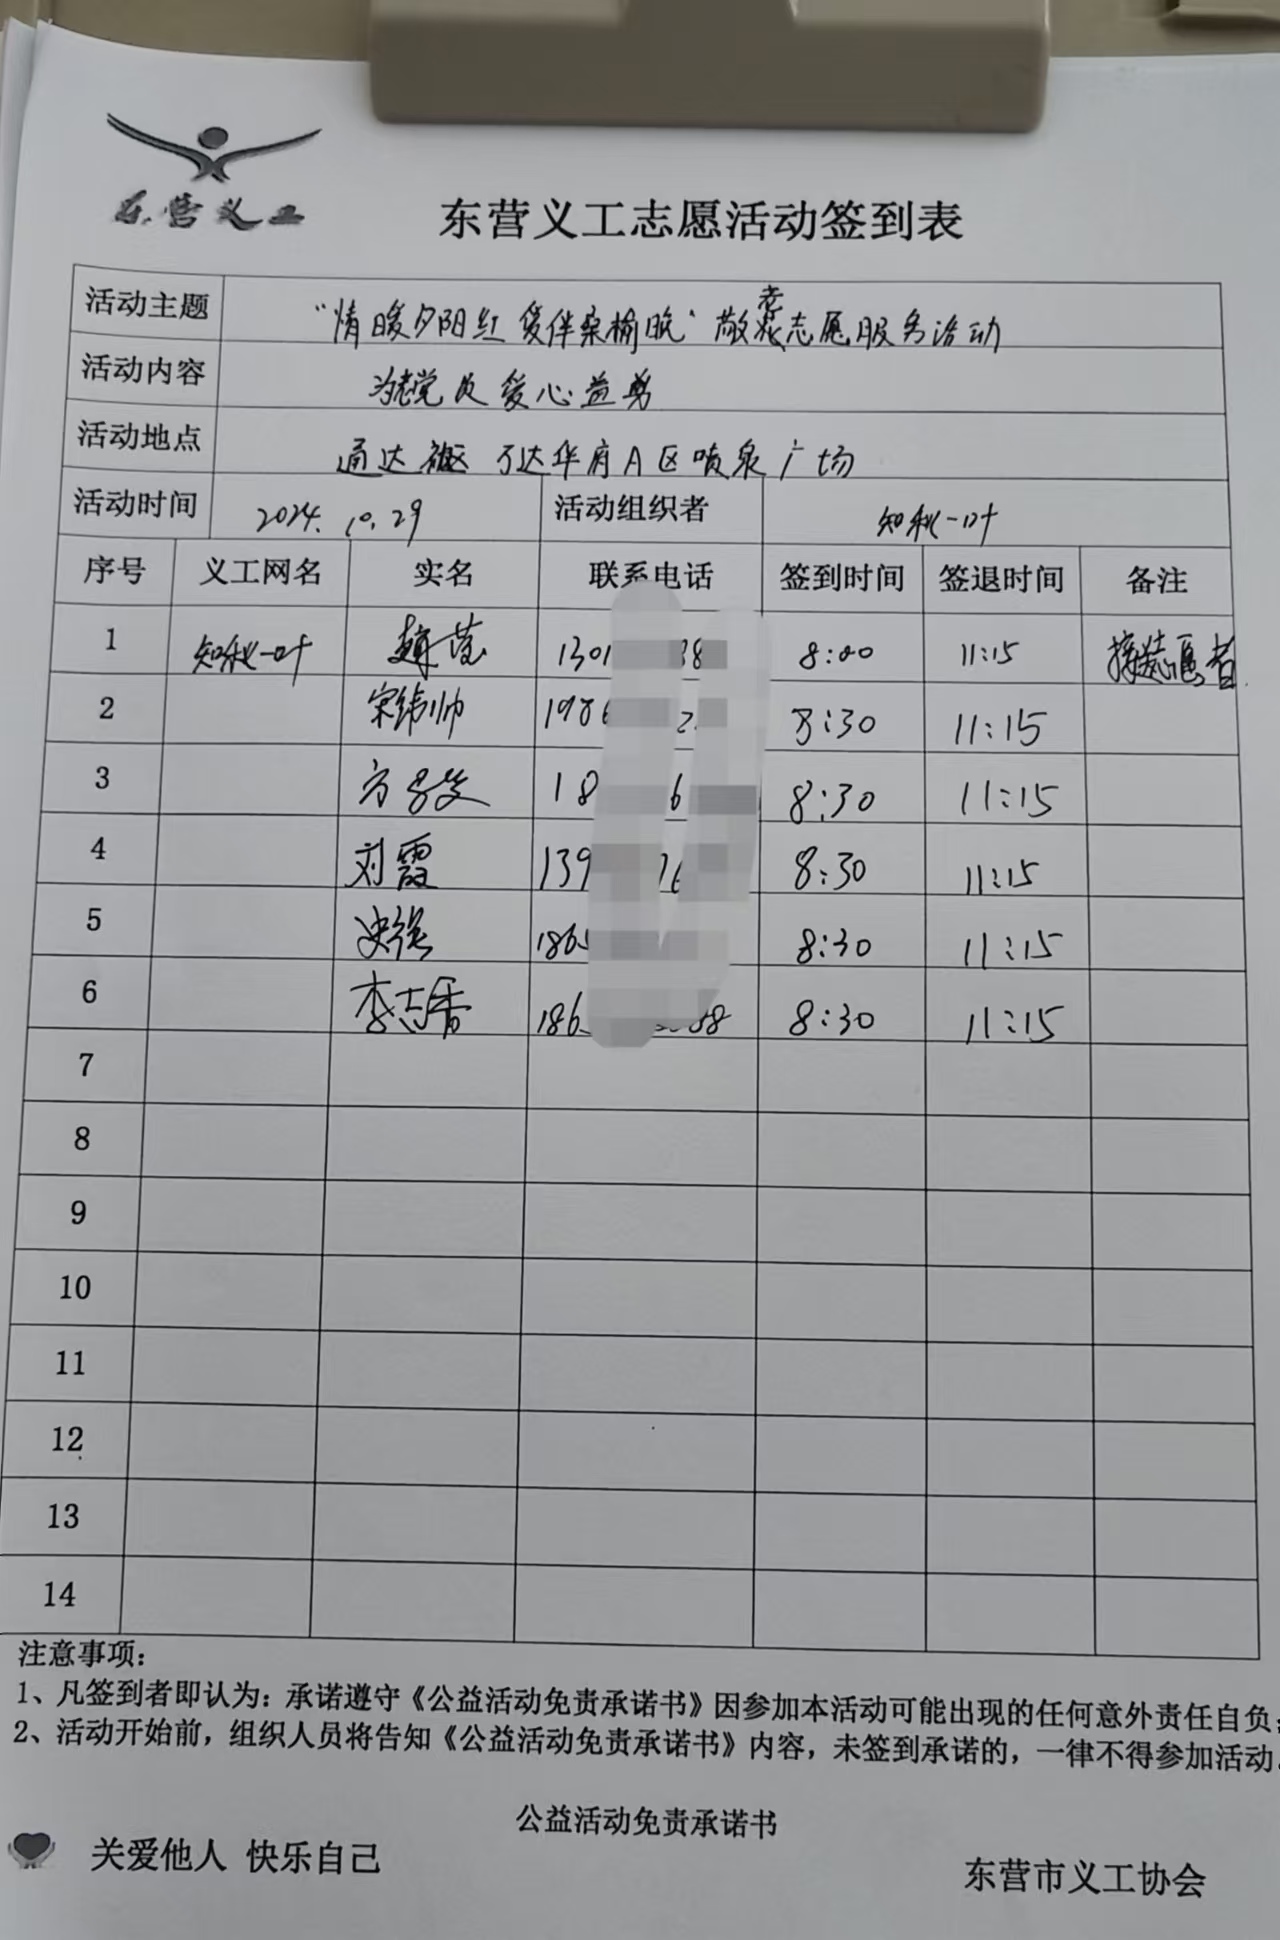 东营义工
东营义工志愿活动签到表
活动主题 “情暖夕阳红 爱伴桑榆晚”敬老志愿服务活动
活动内容 为老党员爱心益剪
活动地点 通达社区 万达华府A区喷泉广场
活动时间 2024.10.29 活动组织者 知秋一叶
序号 义工网名 实名 联系电话 签到时间 签退时间 备注
1 知秋一叶 赵莹 1301 38 8:00 11:15 接送志愿者
2 宋纬帅 1986 2 8:30 11:15
3 方 18 6 8:30 11:15
4 刘霞 139 76 8:30 11:15
5 史强 1865 8:30 11:15
6 李志香 1865 88 8:30 11:15
7
8
9
10
11
12
13
14
注意事项：
1、凡签到者即认为：承诺遵守《公益活动免责承诺书》因参加本活动可能出现的任何意外责任自负；
2、活动开始前，组织人员将告知《公益活动免责承诺书》内容，未签到承诺的，一律不得参加活动.
公益活动免责承诺书
关爱他人 快乐自己
东营市义工协会